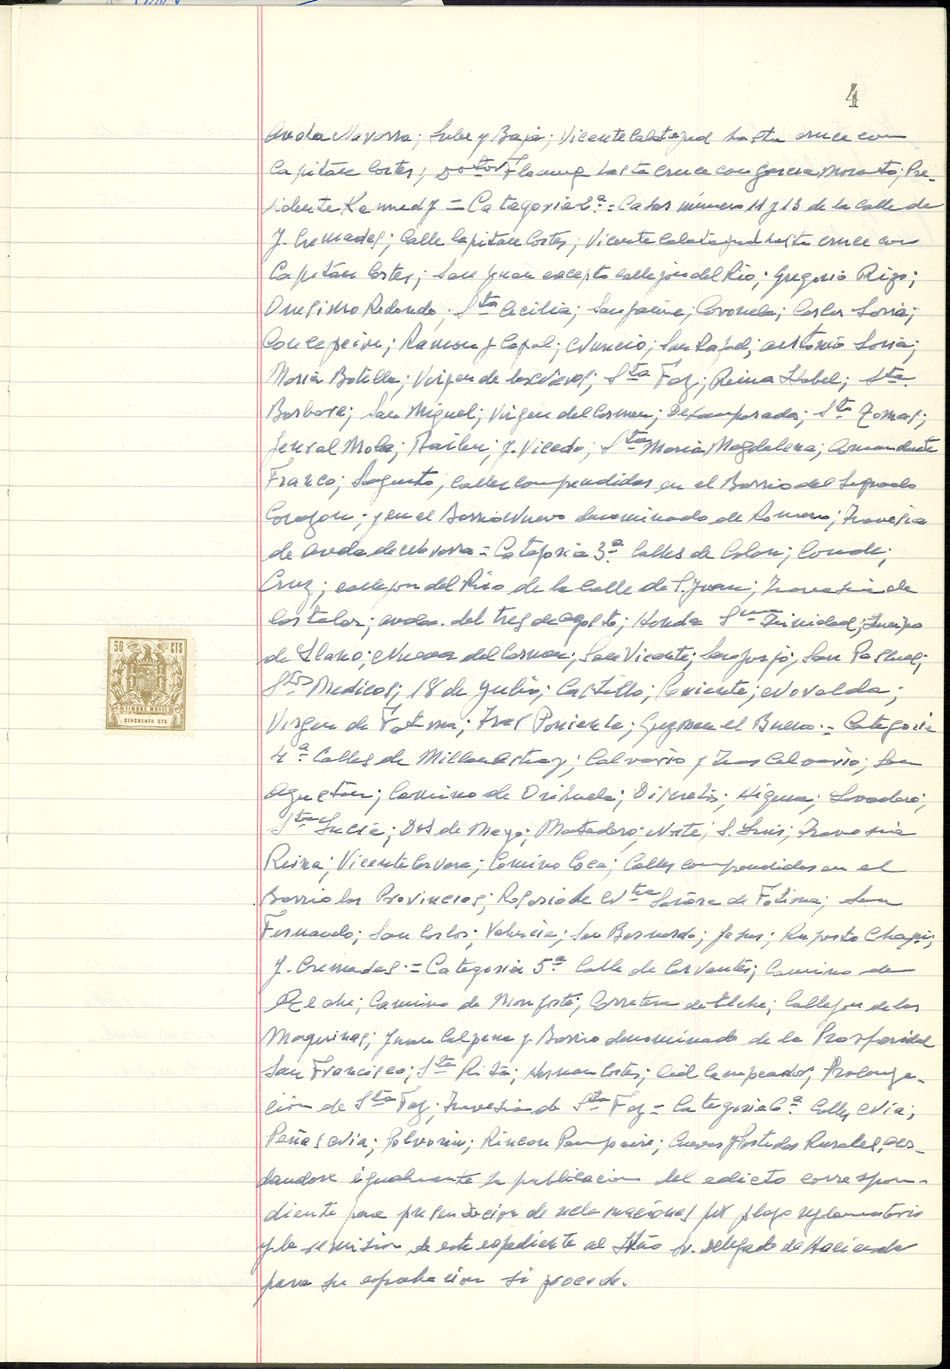 4
Avda Navarra; Sube y Baja; Vicente Calatayud hasta cruce con
Capitán Cortes; Doctor Fleming hasta cruce con Garcia Morato; Pre-
sidente Kennedy = Categoria 2ª = Casas número 11 y 13 de la Calle de
J. Cremades; Calle Capitan Cortes; Vicente Calatayud hasta cruce con
Capitán Cortes; San Juan excepto callejon del Rio; Gregorio Rizo;
Onesimo Redondo; Sta Cecilia; San Jaime; Coronela; Carlos Soria;
Concepcion; Ramon y Cajal; Nuncio; San Rafael; Antonio Soria;
Maria Botella; Virgen de las Nieves; Sta Faz; Reina Isabel; Sta
Barbara; San Miguel; Virgen del Carmen; Desamparados; Sto Tomas;
General Mola; Bailen; J. Vicedo; Sta Maria Magdalena; Comandante
Franco; Sagunto; Calles comprendidas en el Barrio del Sagrado
Corazon; y en el Barrio Nuevo denominado de Romero; Travesia
de Avda de Navarra = Categoria 3ª Calles de Colon; Conde;
Cruz; callejon del Rio de la Calle de S. Juan; Travesia de
Castelar; Avda. del tres de agosto; Honda Sma Trinidad; Queipo
de Llano; Nueva del Carmen; San Vicente; San Jorge; San Pascual;
Stos Medicos; 18 de Julio; Castillo; Oriente; Novelda;
Virgen de Fatima; Tras Poniente; Guzman el Bueno = Categoria
4ª Calles de Millan Astray; Calvario y Tras Calvario; San
Agustin; Camino de Orihuela; Higuera; Lavadero;
Sta Lucia; Dos de Mayo; Matadero; Norte; S. Luis; Travesia
Reina; Vicente Cervera; Camino Coca; Calles comprendidas en el
Barrio las Provincias; Rosario de Ntra Señora de Fatima; San
Fernando; San Carlos; Valencia; San Bernardo; Jesus; Ruperto Chapi;
J. Cremades = Categoria 5ª Calle de Cervantes; Camino de
Elche; Camino de Monforte; Carretera de Elche; Callejon de las
Maquinas; Juan Calpena y Barrio denominado de la Prosperidad
San Francisco; Sta Rita; Hernan Cortes; Cid Campeador; Prolonga-
cion de Sta Faz; Travesia de Sta Faz = Categoria 6ª Calles Nia;
Peñas Nia; Polvorin; Rincon; Cuevas y Partidas Rurales, acor-
dandose igualmente la publicacion del edicto correspon-
diente para presentacion de reclamaciones por plazo reglamentario
y la remision de este expediente al Iltmo Sr. Delegado de Hacienda
para su aprobacion si procede.
50 CTS
TIMBRE MOVIL
CINCUENTA CTS